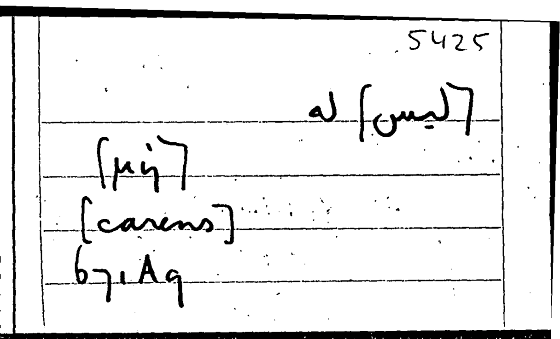 5425
[ليس] له
[μή]
[carens]